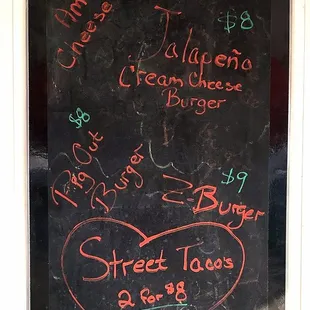 Am
Cheese
$8
Jalapeño
Cream Cheese
Burger
$8
Pig Out
Burger
$9
Burger
Street Taco's
2 for $8